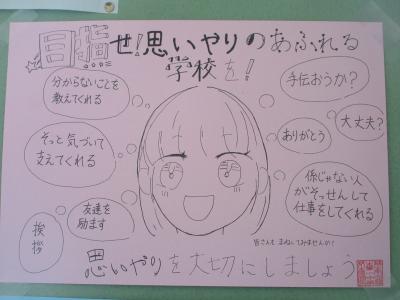 目指せ!思いやりのあふれる
学校を!
分からないことを
教えてくれる
手伝おうか?
そっと気づいて
支えてくれる
ありがとう
大丈夫?
友達を
励ます
係じゃない人
がそっせんして
仕事をしてくれる
挨拶
皆さんも まねしてみませんか?
思いやりを大切にしましょう